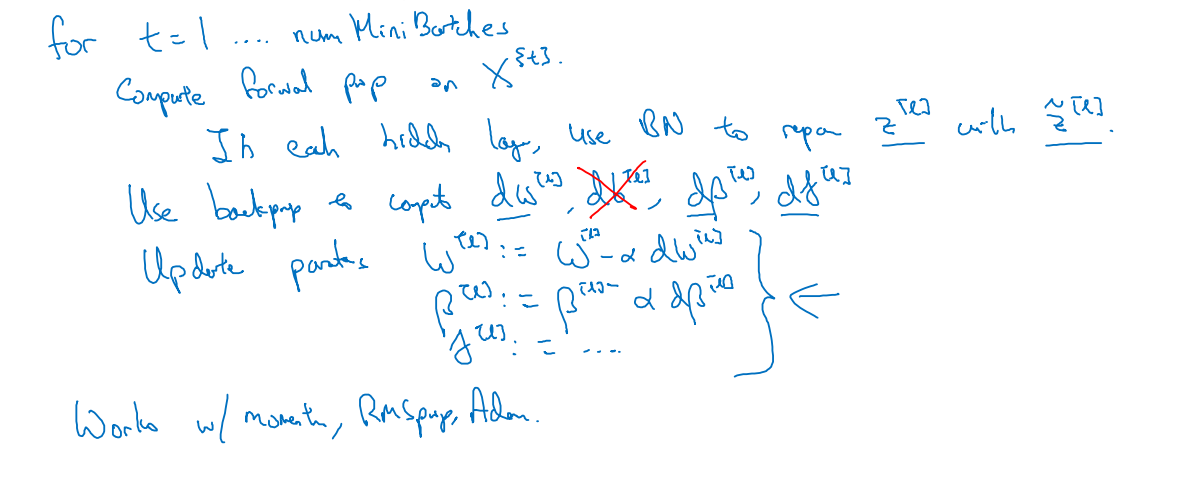 for t = 1 .... num Mini Batches
Compute forward prop on X^{t}.
In each hidden layer, use BN to repan z^[l] with z̃^[l].
Use backprop to compute dw^[l], db^[l], dβ^[l], dγ^[l]
Update params w^[l] := w^[l] - α dw^[l]
β^[l] := β^[l] - α dβ^[l]
γ^[l] := ....
Works w/ momentum, RMSprop, Adam.